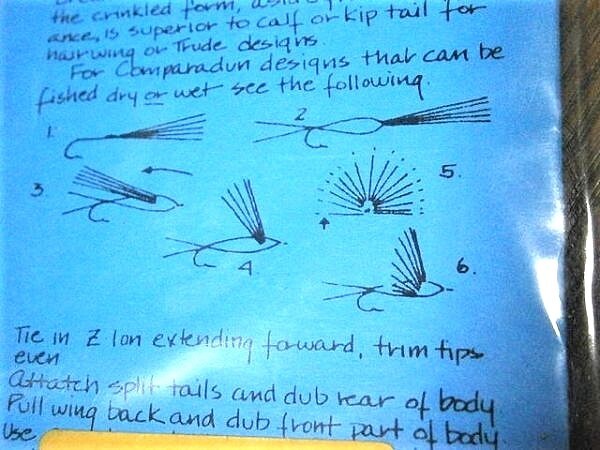 the crinkled form,
ance, is superior to calf or kip tail for
hairwing or Trude designs.
For Comparadun designs that can be
fished dry or wet see the following.
1.
2
3.
5.
4
6.
Tie in Z lon extending forward, trim tips
even
Attatch split tails and dub rear of body
Pull wing back and dub front part of body.
Use